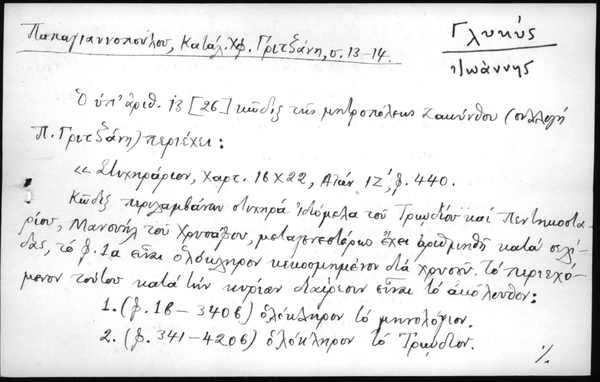 Γλυκύς
Ἰωάννης
Παπαγιαννοπούλου, Κατάλ. Χφ. Γριτζάνη, σ. 13-14.
Ὁ ὑπ' ἀριθ. 13 [26] κῶδιξ τῆς μητροπόλεως Ζακύνθου (συλλογή
Π. Γριτζάνη) περιέχει:
«Στιχηράριον, Χαρτ. 16 Χ 22, Αἰών ΙΖ', φ. 440.
Κῶδιξ περιλαμβάνων στιχηρά ἰδιόμελα τοῦ Τριωδίου καί Πεντηκοστα-
ρίου, Μανουήλ τοῦ Χρυσάφου, μεταγενεστέρως ἔχει ἀριθμηθῆ κατά σελί-
δας, τό φ. 1α εἶναι ὁλόκληρον κεκοσμημένον διά χρυσοῦ. Τό περιεχό-
μενον τούτου κατά τήν κυρίαν διαίρεσιν εἶναι τό ἀκόλουθον:
1. (φ. 1β - 340β) ὁλόκληρον τό μηνολόγιον.
2. (φ. 341-420β) ὁλόκληρον τό Τριῴδιον.
./.